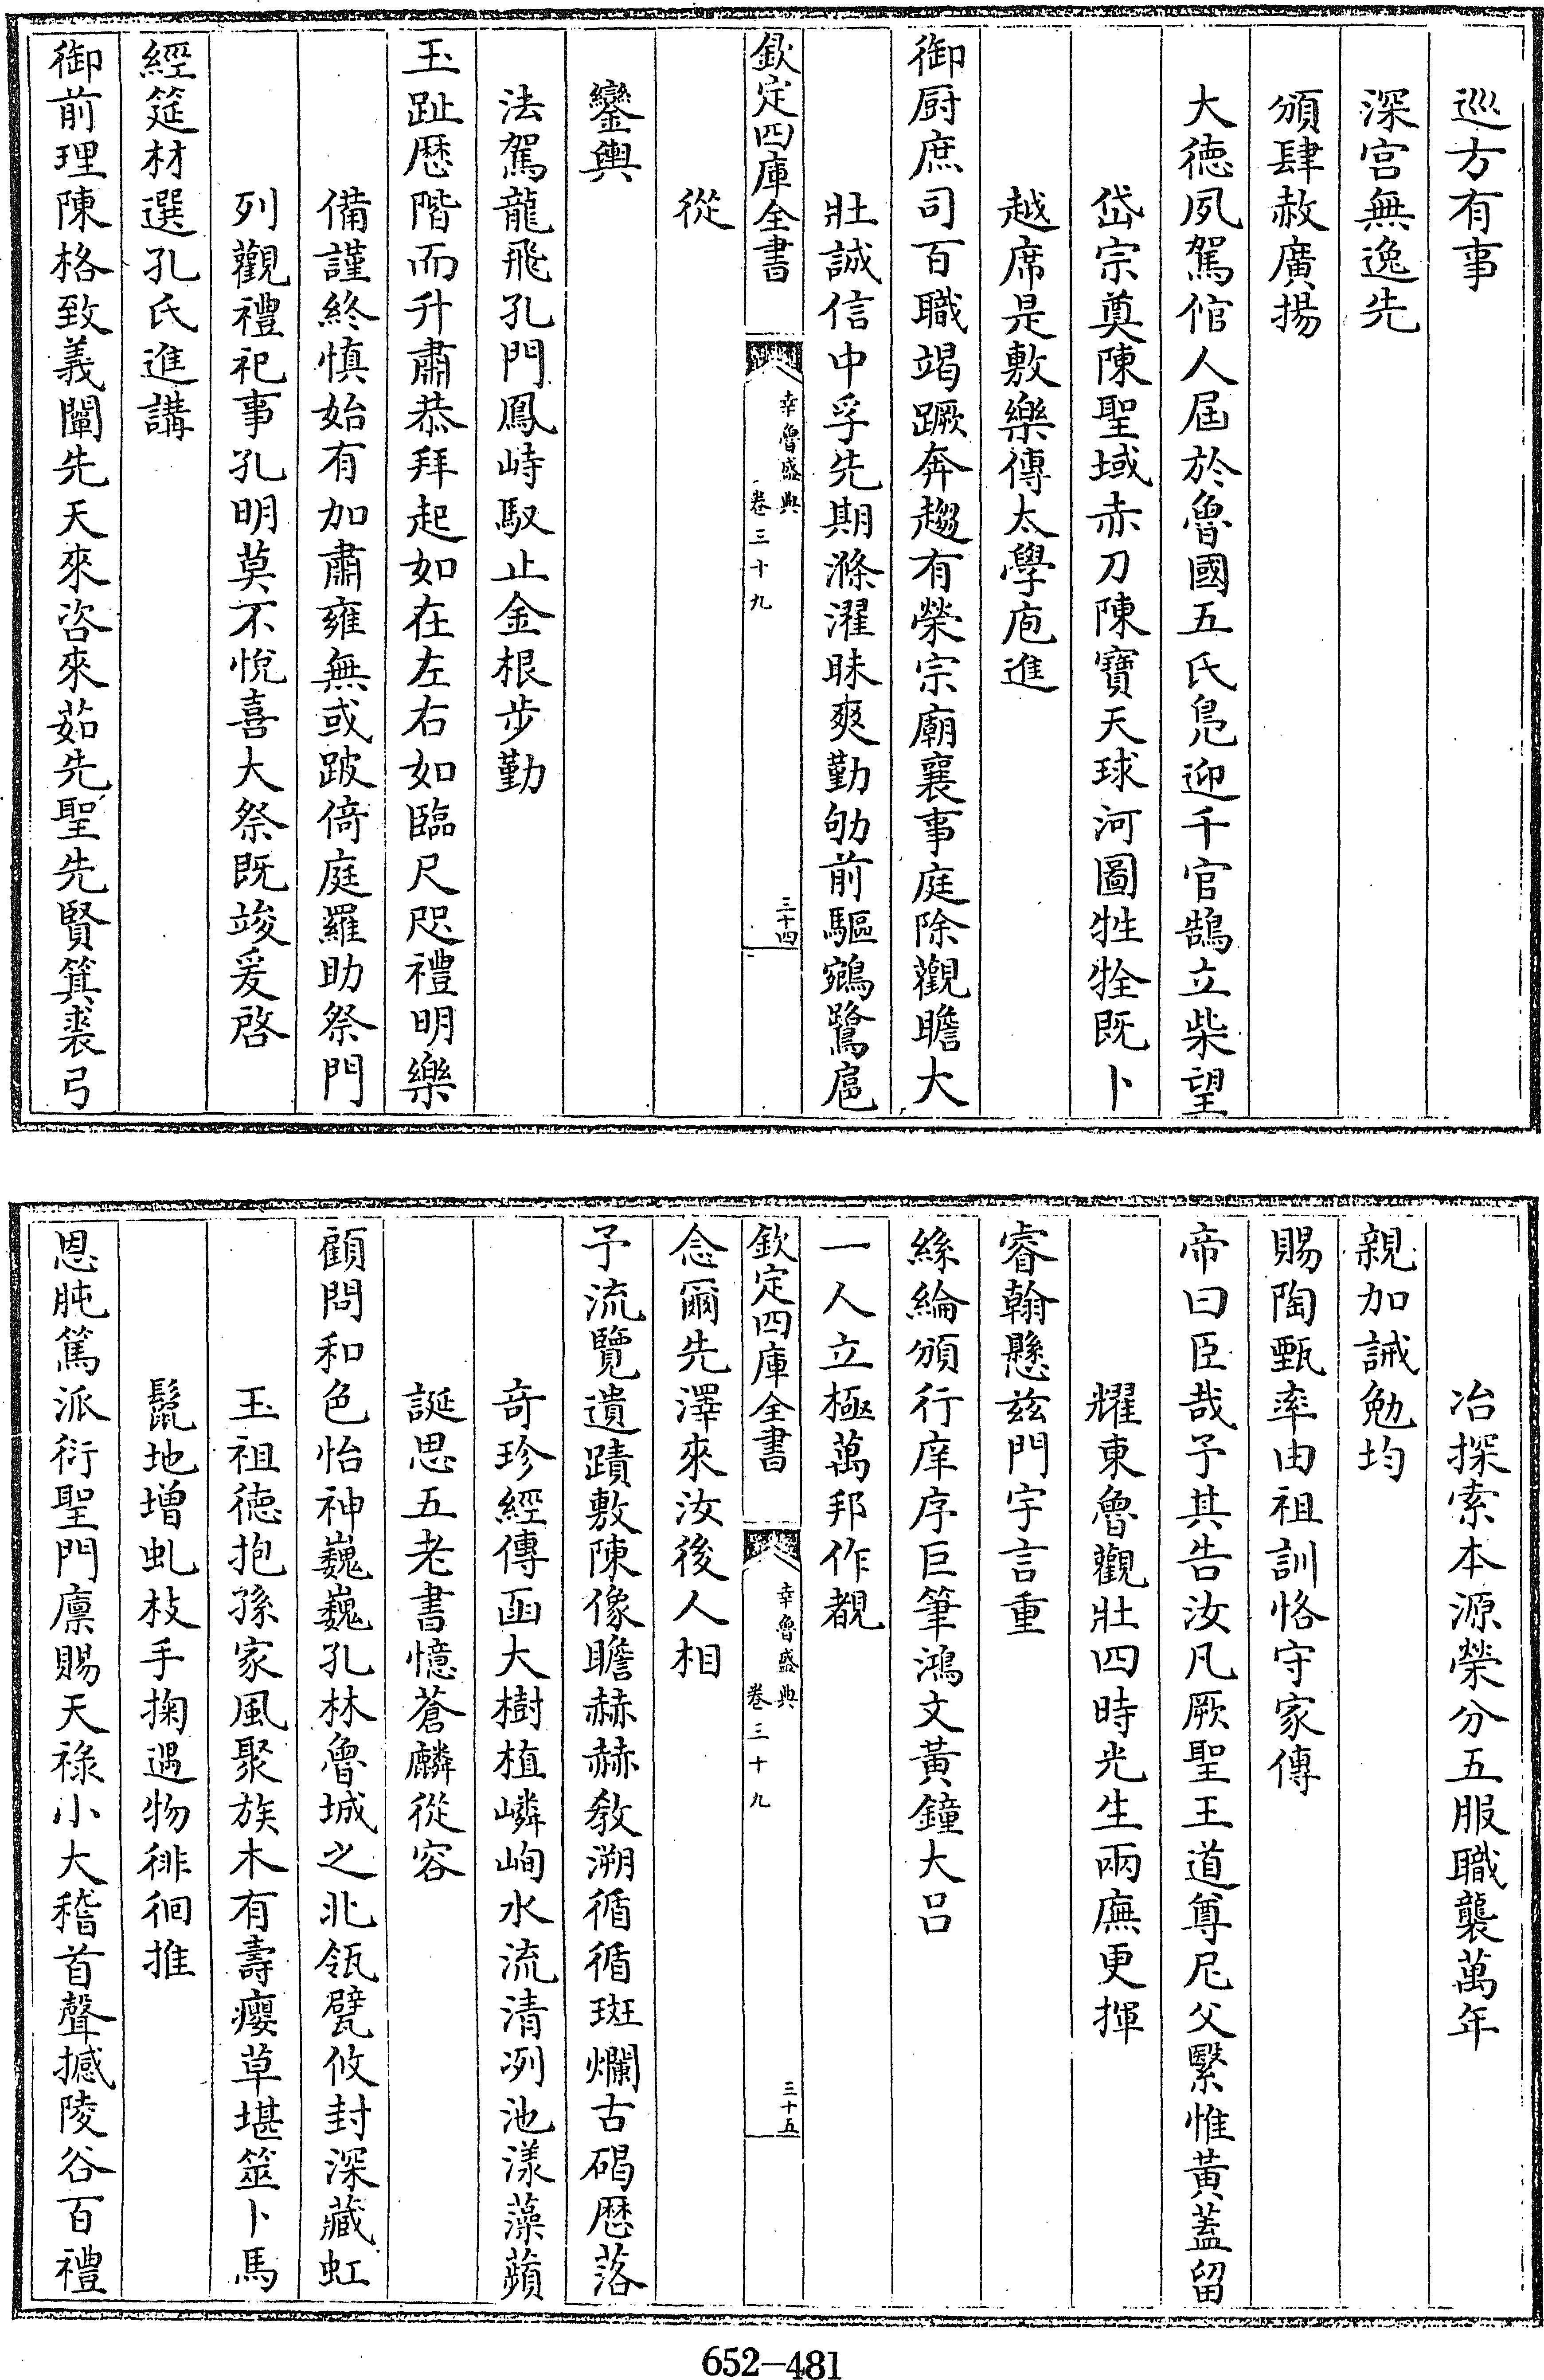 巡方有事
深宫無逸先
頒肆赦廣揚
大徳夙駕倌人屆於魯國五氏鳧迎千官鵠立柴望
岱宗奠陳聖域赤刀陳寶天球河圖牲牷既卜
越席是敷樂傳太學庖進
御厨庶司百職竭蹶奔趨有榮宗廟襄事庭除觀瞻大
壯誠信中孚先期滌濯昧爽勤劬前驅鵷鷺扈
從
欽定四庫全書
幸魯盛典
卷三十九
三十四
鑾輿
法駕龍飛孔門鳳峙馭止金根步勤
玉趾歴階而升肅恭拜起如在左右如臨尺咫禮明樂
備謹終慎始有加肅雍無或跛倚庭羅助祭門
列觀禮祀事孔明莫不悅喜大祭既竣爰啓
經筵材選孔氏進講
御前理陳格致義闡先天來咨來茹先聖先賢箕裘弓
冶探索本源榮分五服職襲萬年
親加誡勉均
賜陶甄率由祖訓恪守家傳
帝曰臣哉予其告汝凡厥聖王道尊尼父緊惟黃蓋留
耀東魯觀壯四時光生兩廡更揮
睿翰懸兹門宇言重
絲綸頒行庠序巨筆鴻文黃鐘大呂
一人立極萬邦作覩
念爾先澤來汝後人相
欽定四庫全書
幸魯盛典
卷三十九
三十五
予流覽遺蹟敷陳像瞻赫赫敎溯循循斑斕古碣歴落
奇珍經傳函大樹植嶙峋水流清冽池漾藻蘋
誕思五老書憶蒼麟從容
顧問和色怡神巍巍孔林魯城之北瓴甓攸封深藏虹
玉祖徳抱孫家風聚族木有壽癭草堪筮卜馬
鬛地增虬枝手掬遇物徘徊推
恩肫篤派衍聖門廪賜天祿小大稽首聲撼陵谷百禮
652-481